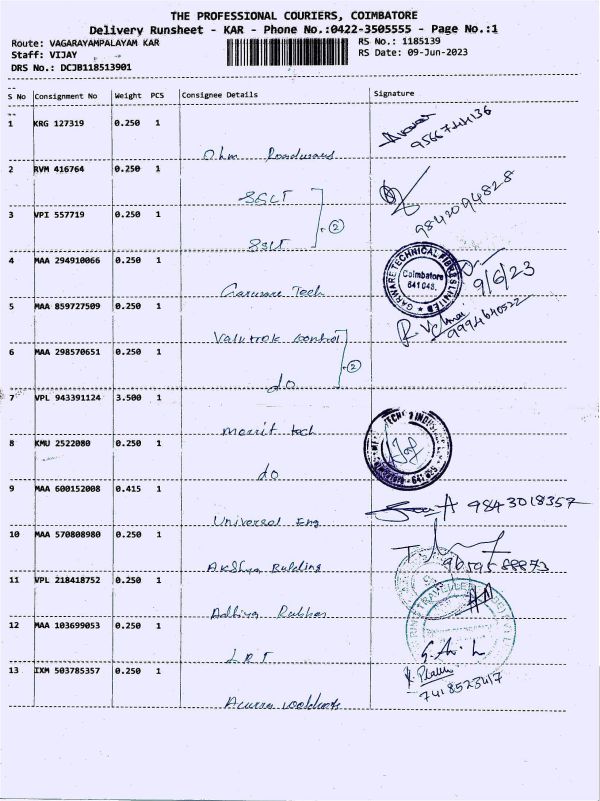 THE PROFESSIONAL COURIERS, COIMBATORE
Delivery Runsheet - KAR - Phone No.:0422-3505555 - Page No.:1
Route: VAGARAYAMPALAYAM KAR
RS No.: 1185139
Staff: VIJAY
RS Date: 09-Jun-2023
DRS No.: DCJB118513901
S No Consignment No Weight PCS Consignee Details Signature
1 KRG 127319 0.250 1
9566744136
2 RVM 416764 0.250 1
9842094828
3 VPI 557719 0.250 1
2
4 MAA 294910066 0.250 1
GARWARE TECHNICAL FIBRES LIMITED
Coimbatore
641 048.
9/6/23
Garware Tech
5 MAA 859727509 0.250 1
9994640522
control
6 MAA 298570651 0.250 1
2
do
7 VPL 943391124 3.500 1
tech
8 KMU 2522080 0.250 1
do
9 MAA 600152008 0.415 1
9843018357
Universal Eng
10 MAA 570808980 0.250 1
Akshya
11 VPL 218418752 0.250 1
12 MAA 103699053 0.250 1
13 IXM 503785357 0.250 1
7418523417